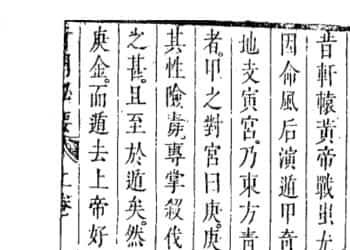 昔軒轅黃帝戰蚩尤
因命風后演遁甲奇
地支寅宮乃東方青
者甲之對宮曰庚庚
其性險毒專掌殺伐
之甚且至於遁矣然
庚金而遁去上帝好
奇門
要
上卷